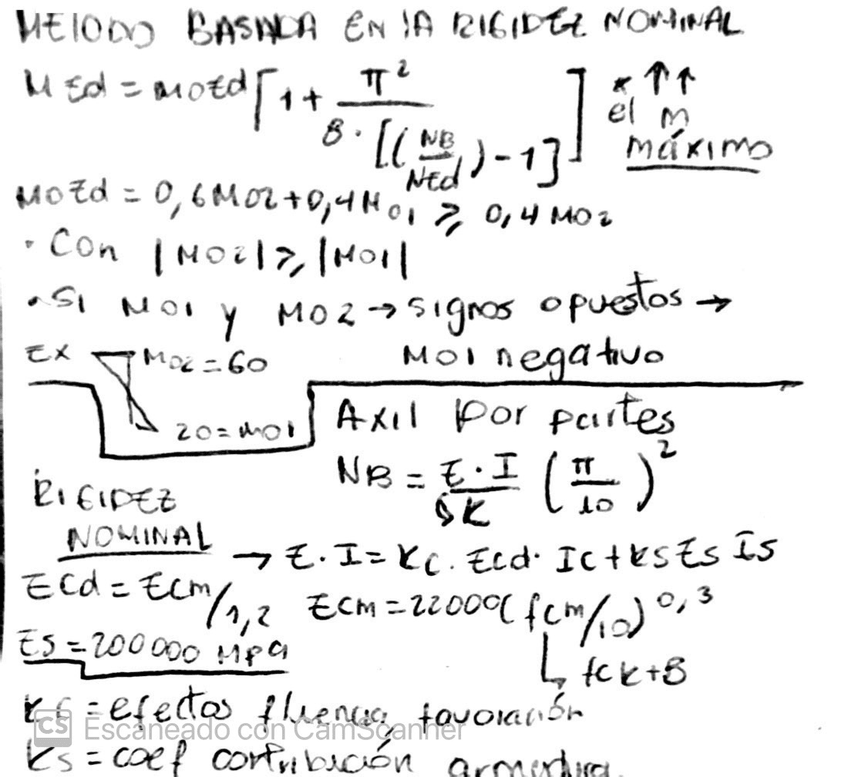 METODO BASADA EN LA RIGIDEZ NOMINAL
MEd = MOEd [ 1 + π² / 8 · [(NB/NEd) - 1] ] * ↑↑ el M máximo
MOEd = 0,6MO2 + 0,4MO1 ≥ 0,4 MO2
· Con |MO2| ≥ |MO1|
· Si MO1 y MO2 → signos opuestos →
MO1 negativo
EX MO2 = 60
20 = MO1
Axil por partes
NB = E·I / γK (π / lo)²
RIGIDEZ
NOMINAL → E·I = Kc · Ecd · Ic + Ks Es Is
Ecd = Ecm/1,2 Ecm = 22000(fcm/10)^0,3
Es = 200000 MPa ↳ fck+8
Kc = efectos fluencia,
CS Escaneado con CamScanner
Ks = coef contribución armadura.